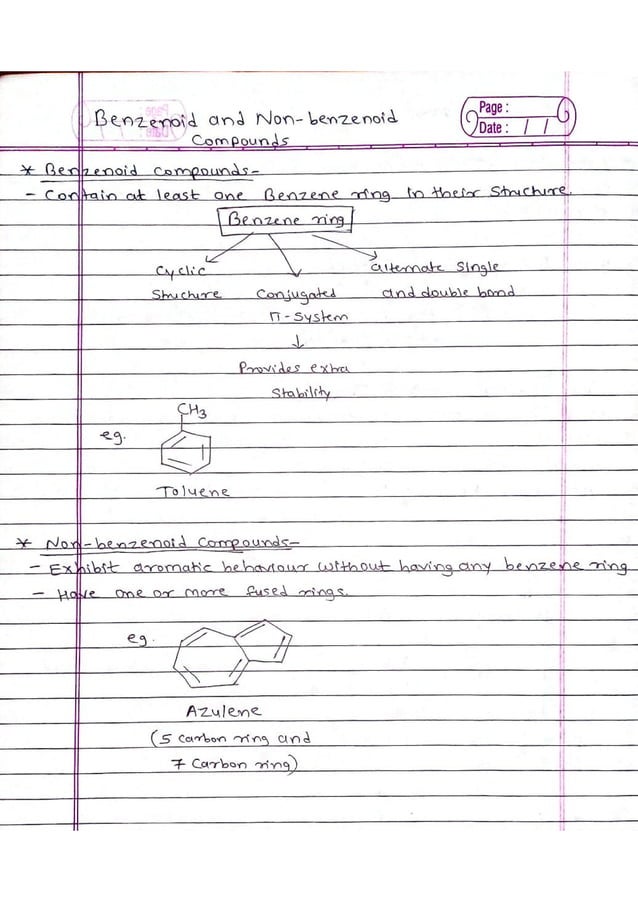 Benzenoid and Non-benzenoid
Compounds
Page :
Date : / /
* Benzenoid compounds-
- Contain at least one Benzene ring in their Structure.
Benzene ring
Cyclic Structure
Conjugated π-System
alternate Single and double bond
↓
Provides extra
Stability
CH3
eg.
Toluene
* Non-benzenoid Compounds-
- Exhibit aromatic behaviour without having any benzene ring
- Have one or more fused rings.
eg.
Azulene
(5 carbon ring and
7 Carbon ring)